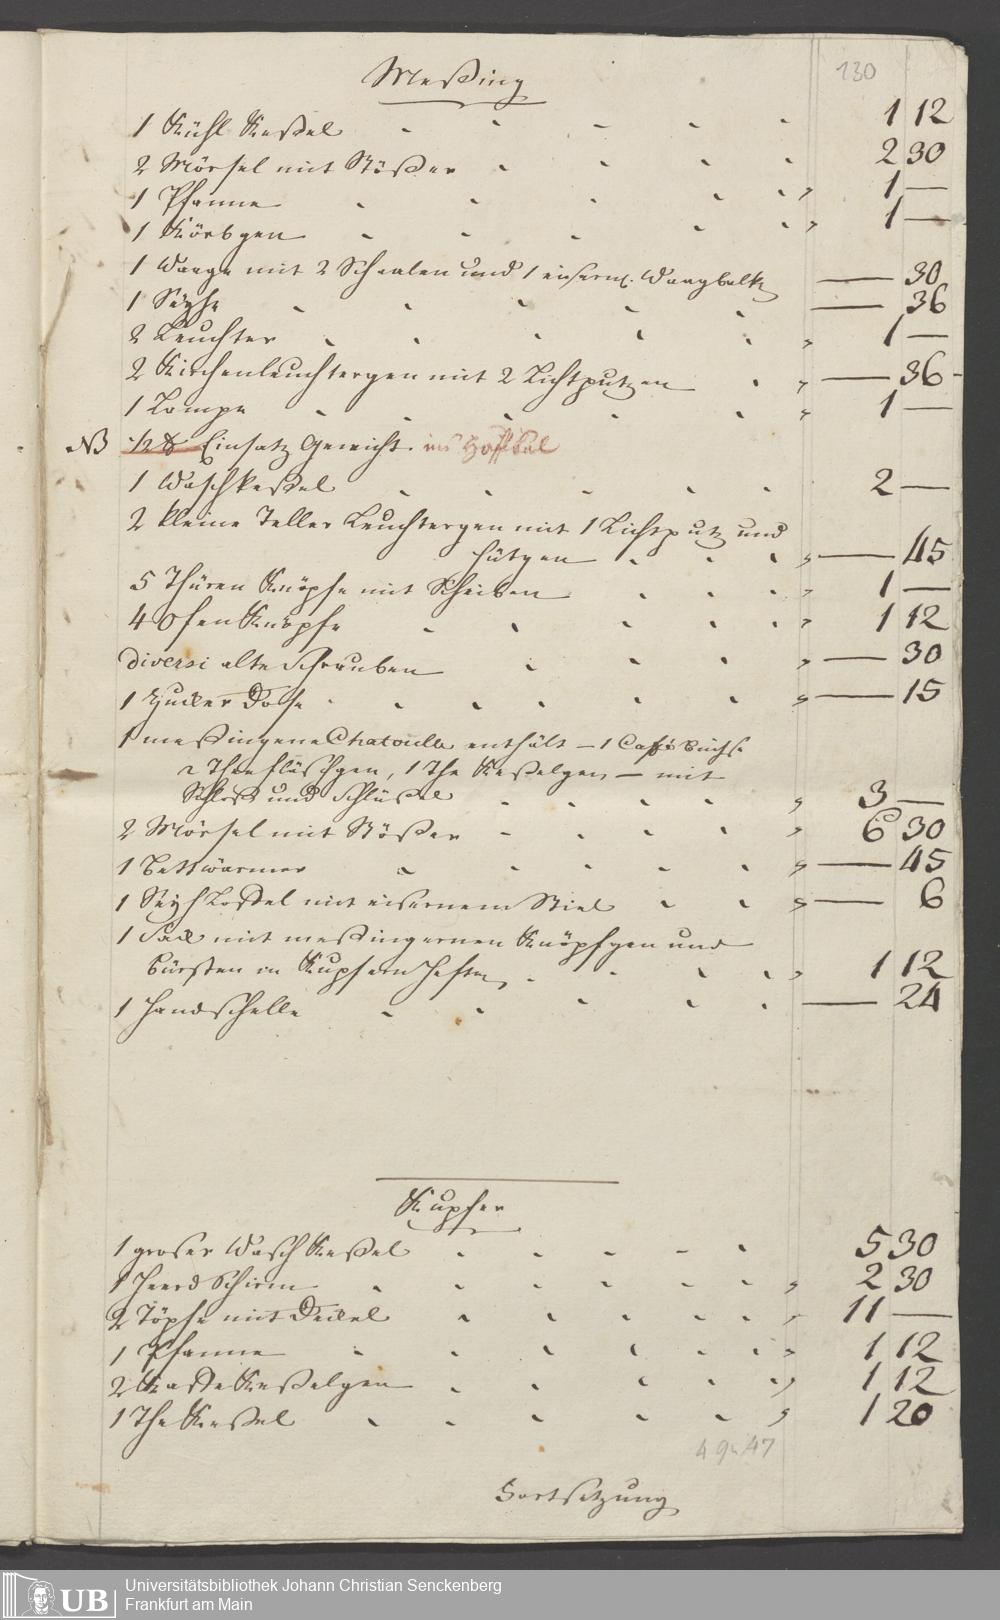 130
Meßing
1 Kühl Keßel 1 12
2 Mörsel mit Stößer 2 30
1 Pfanne " 1 —
1 Körbgen " 1 —
1 Waage mit 2 Schaalen und 1 eisern. Waagbalk — 30
1 Seyhe — 36
2 Leuchter " 1 —
2 Küchenleuchtergen mit 2 Lichtputzen " — 36
1 Lampe " 1 —
NB 12 ℔ Einsatz Gewicht. ins Hospital
1 Waschkeßel 2 —
2 kleine Teller Leuchtergen mit 1 Lichtputz und
Hütgen " — 45
5 Thüren Knöpfe mit Scheiben " 1 —
4 Ofen Knöpfe " 1 12
Diversi alte Schrauben " — 30
1 Zucker Dose " — 15
1 meßingene Chatoulle enthält — 1 Caffé Büchse
2 Theefläschgen, 1 The Keßelgen — mit
Schloß und Schlüßel " 3 —
2 Mörsel mit Stößer " 6 30
1 Bettwärmer " — 45
1 Seyh Löffel mit eisernem Stiel " — 6
1 mit meßingernen Knöpfgen und
Bürsten in Kupfern Heften " 1 12
1 Handschelle — 24
Kupfer
1 groser Wasch Keßel 5 30
1 Heerd Schirm " 2 30
2 Töpfe mit Deckel " 11 —
1 Pfanne " 1 12
2 Kaffe Keßelgen " 1 12
1 The Keßel " 1 20
49. 47
Fortsetzung
UB
Universitätsbibliothek Johann Christian Senckenberg
Frankfurt am Main